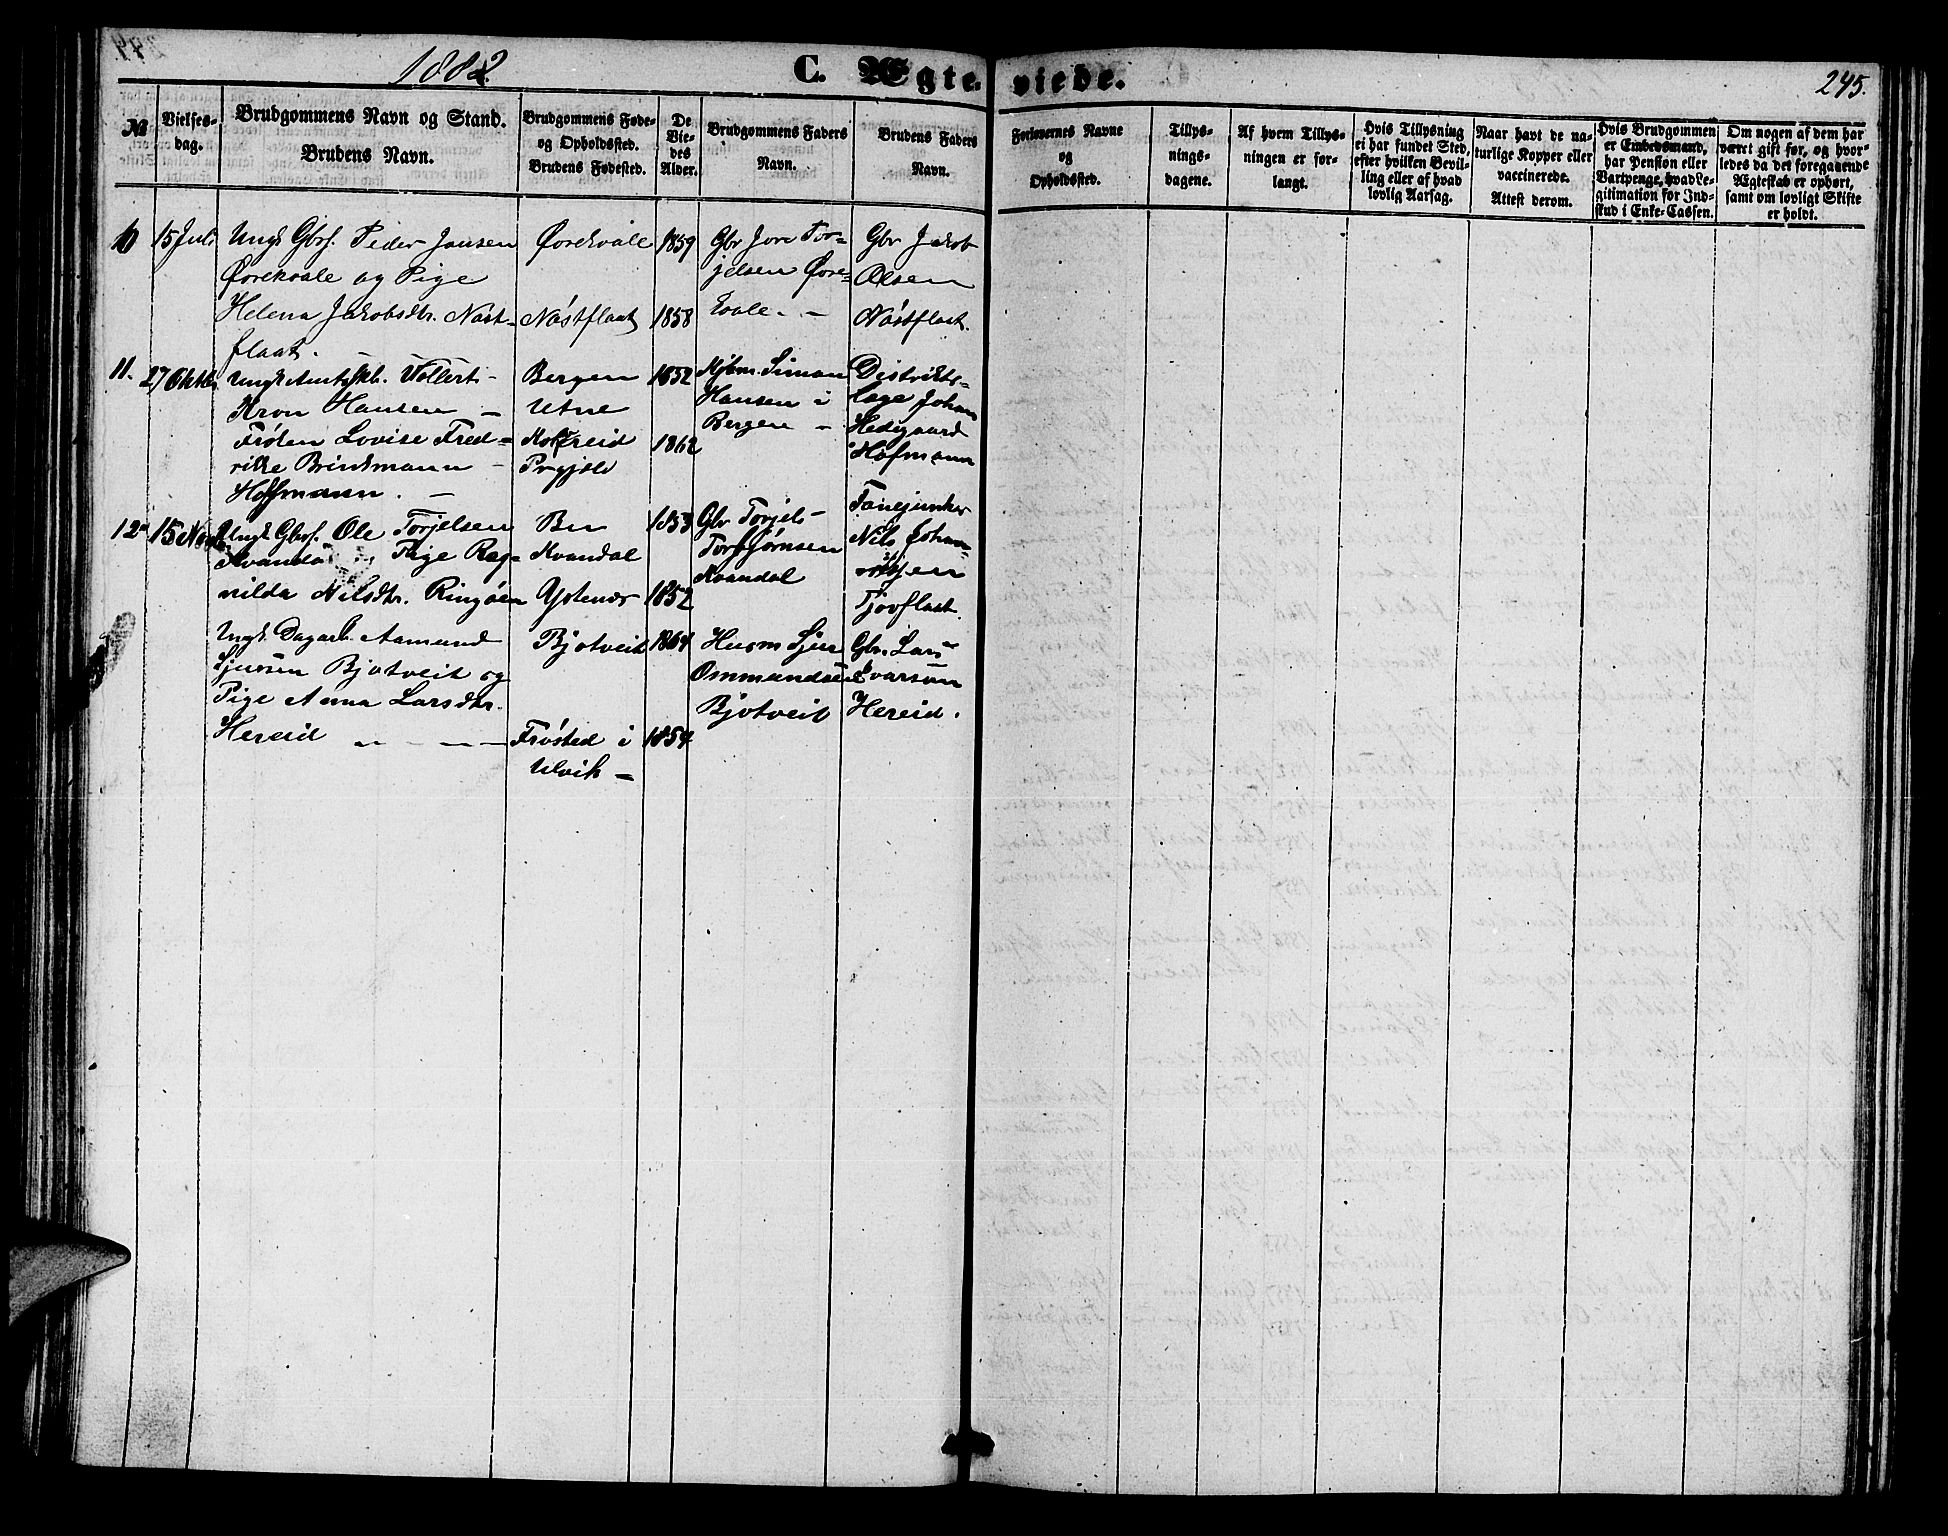 1882
C. Ægte- viede.
245.
№
Vielses-
dag.
Brudgommens Navn og Stand.
Brudens Navn.
Brudgommens Føde-
og Opholdssted.
Brudens Fødested.
De
Vie-
des
Alder.
Brudgommens Faders
Navn.
Brudens Faders
Navn.
Forlovernes Navne
og
Opholdssted.
Tillys-
nings-
dagene.
Af hvem Tillys-
ningen er for-
langt.
Hvis Tillysning
ei har fundet Sted,
efter hvilken Bevil-
ling eller af hvad
lovlig Aarsag.
Naar havt de na-
turlige Kopper eller
vaccinerede.
Attest derom.
Hvis Brudgommen
er Embedsmand,
har Pension eller
Vartpenge, hvad Le-
gitimation for Ind-
skud i Enke-Cassen.
Om nogen af dem har
været gift før, og hvor-
ledes da det foregaaende
Ægteskab er ophørt,
samt om lovligt Skifte
er holdt.
10
15 Juli
Ungk Gbrs. Peder Jonsen
Ørekvale og Pige
Helena Jakobsdtr. Nøst-
flaat.
Ørekvale
Nøstflaat
1859
1858
Gbr Jon Tor-
jelsen Øre-
kvale. -
Gbr Jakob
Olsen
Nøstflaat.
11.
27 Oktbr
Ungk Amtsskb. Vollert
Kron Hansen -
Frøken Lovise Fred-
rikke Brinkmann -
Hoffmann. -
Bergen
Utne
Kolfreid
Prgjeld
1852
1862
Kjbm. Simon
Hansen i
Bergen -
Distrikts-
læge Johan
Hedegaard
Hofmann
12
15 Nov
Ungk Gbrs. Ole Torjelsen
Kvandal Pige Rag-
nilda Nilsdtr. Ringøen
Bu
Kvandal
Ystenæs
1853
1852
Gbr Torjels
Torbjørnsen
Kvandal
Fanejunker
Nils Johan-
Tjovflaat
Ungk. Dagarb. Aamund
Sjursen Bjotveit og
Pige Anna Larsdtr.
Hereid - - - -
Bjotveit
Frøsted i
Ulvik -
1864
1854
Husm Sjur
Ommundsen
Bjotveit
Gbr. Lars
Ivarson
Hereid.